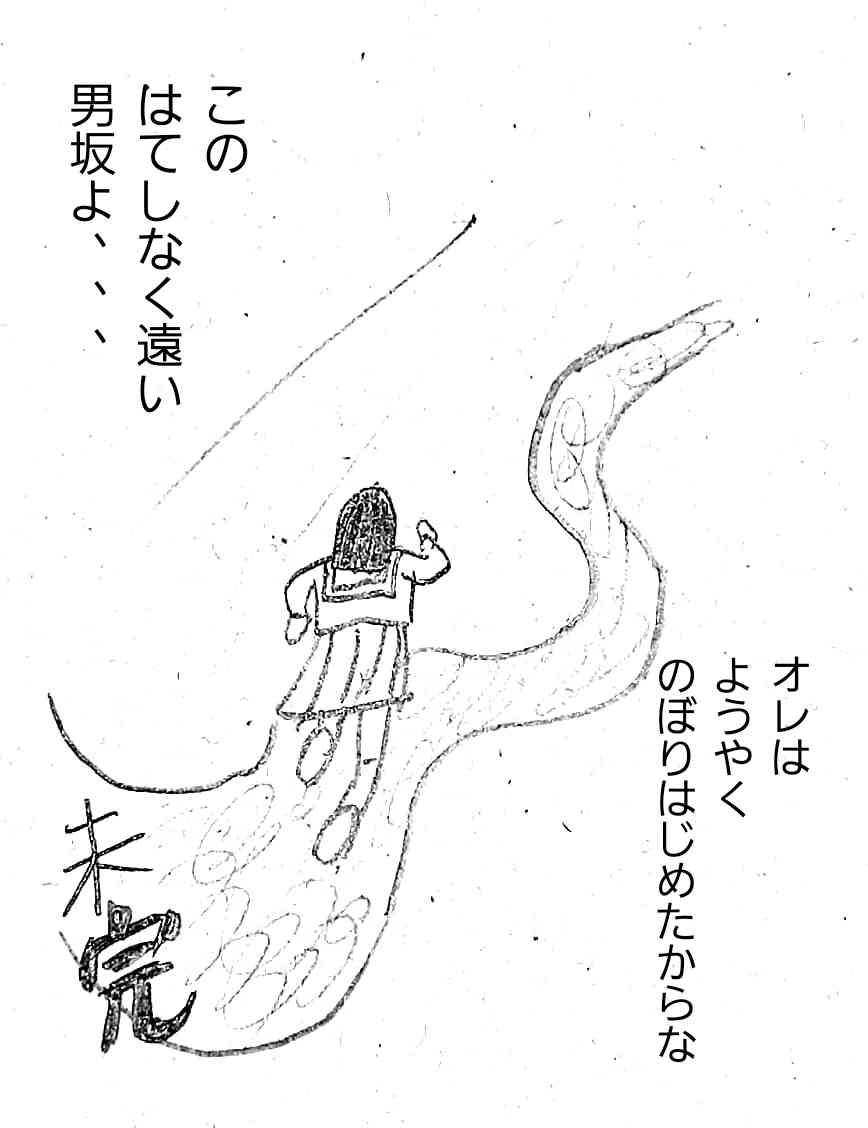 オレは
ようやく
のぼりはじめたからな
この
はてしなく遠い
男坂よ、、、
未完